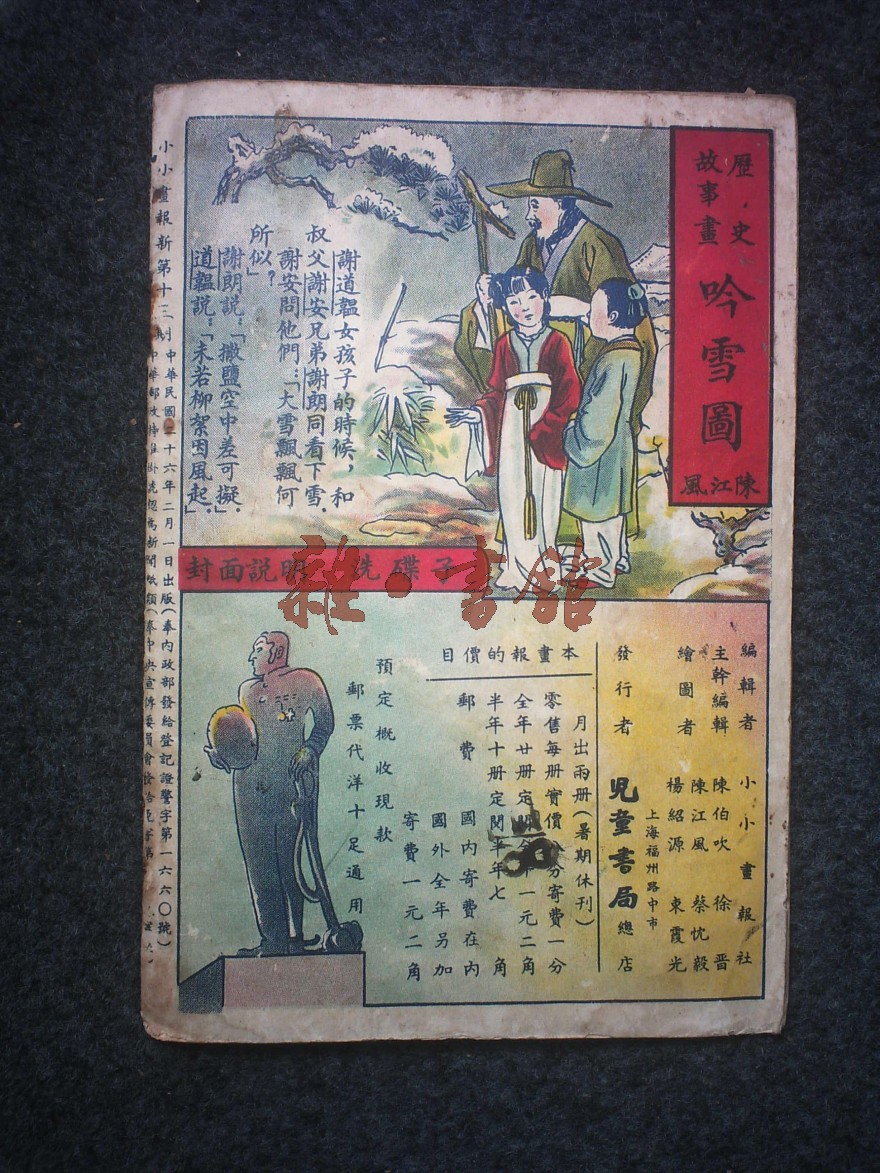 歷史
故事畫
吟雪圖
陳江風
謝道韞女孩子的時候，和
叔父謝安兄弟謝朗同看下雪．
謝安問他們：「大雪飄飄何
所似？」
謝朗說：「撒鹽空中差可擬．」
道韞說：「未若柳絮因風起．」
封面說明 洗碟子
雜·書館
編輯者 小小畫報社
主幹編輯 陳伯吹 徐晋
繪圖者 陳江風 蔡忱毅
楊紹源 東霞光
發行者 兒童書局總店
上海福州路中市
本畫報的價目
月出兩册(暑期休刊)
零售每册實價 分寄費一分
全年廿册定 年一元二角
半年十册定閱半年七角
郵費 國内寄費在内
國外全年另加
寄費一元二角
預定概收現款
郵票代洋十足通用
小小畫報新第十三期 中華民國二十六年二月一日出版(奉内政部發給登記證警字第一六六〇號)
中華郵政特准掛號認為新聞紙類